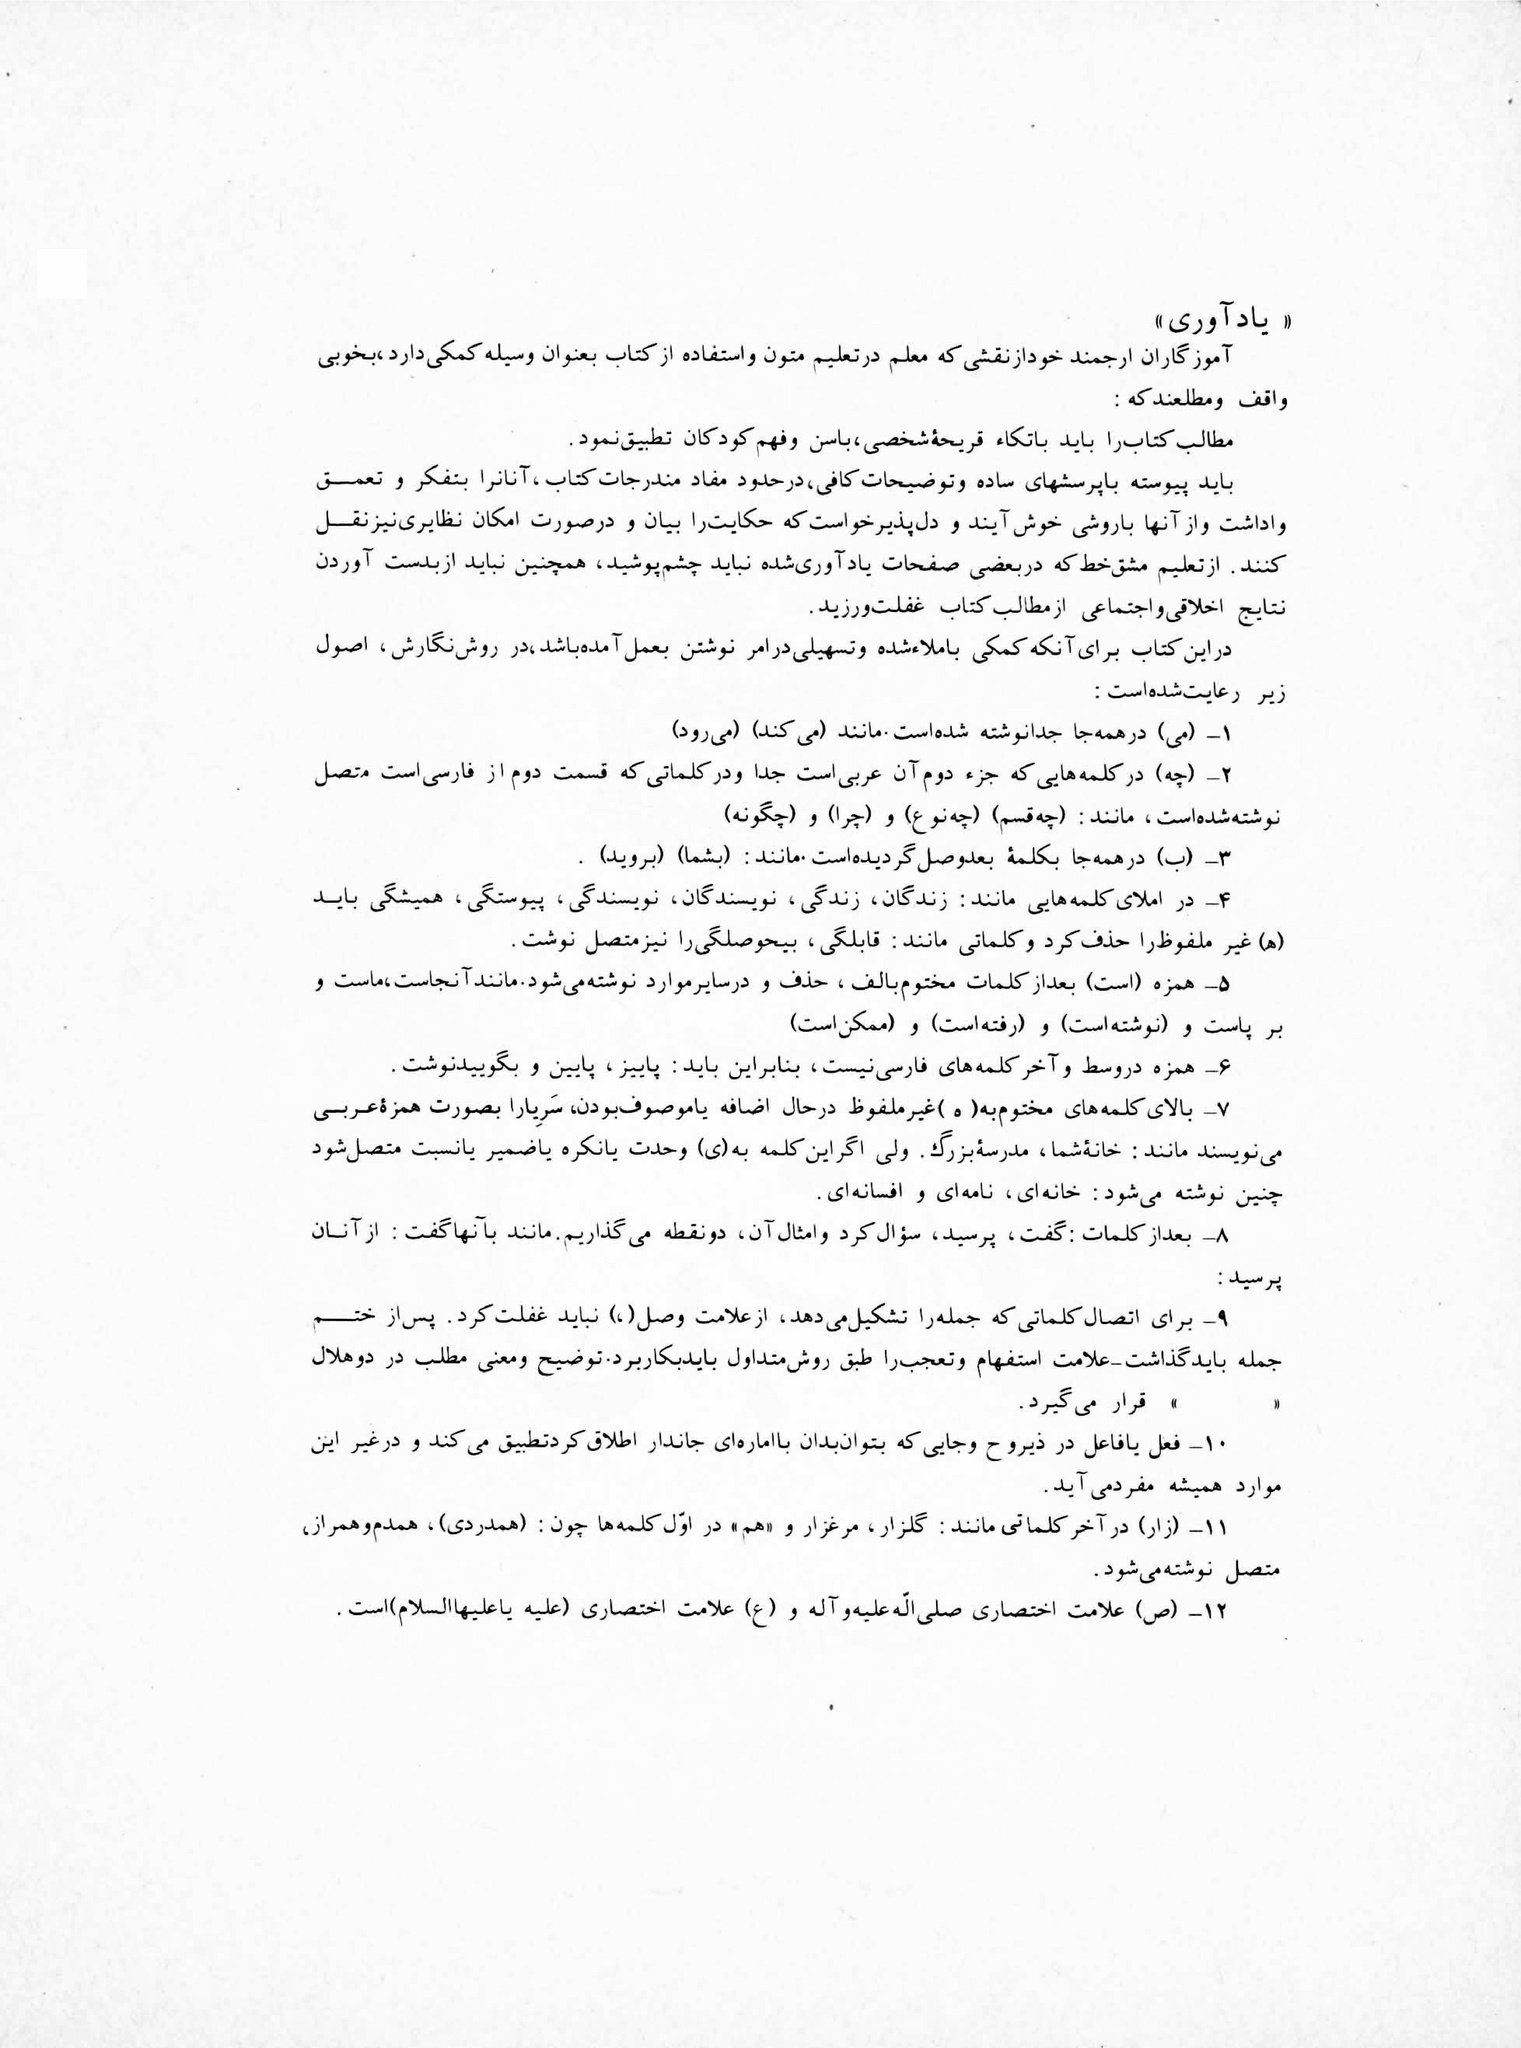 « یادآوری»
آموزگاران ارجمند خودازنقشی‌که معلم درتعلیم متون واستفاده ازکتاب بعنوان وسیله‌کمکی‌دارد،بخوبی
واقف ومطلعندکه :
مطالب‌کتاب‌را باید باتکاء قریحۀشخصی،باسن وفهم‌کودکان تطبیق‌نمود.
باید پیوسته باپرسشهای ساده وتوضیحات‌کافی،درحدود مفاد مندرجات‌کتاب،آنانرا بتفکر و تعمــق
واداشت وازآنها باروشی خوش‌آیند و دل‌پذیرخواست‌که حکایت‌را بیان و درصورت امکان نظایری‌نیزنقــل
کنند. ازتعلیم مشق‌خط‌که دربعضی صفحات یادآوری‌شده نباید چشم‌پوشید، همچنین نباید ازبدست آوردن
نتایج اخلاقی‌واجتماعی ازمطالب‌کتاب غفلت‌ورزید.
دراین‌کتاب برای‌آنکه‌کمکی باملاءشده وتسهیلی‌درامر نوشتن بعمل‌آمده‌باشد،در روش‌نگارش، اصول
زیر رعایت‌شده‌است :
۱ــ (می) درهمه‌جا جدانوشته شده‌است.مانند (می‌کند) (می‌رود)
۲ــ (چه) درکلمه‌هایی‌که جزء دوم‌آن عربی‌است جدا ودرکلماتی‌که قسمت دوم از فارسی‌است متصل
نوشته‌شده‌است، مانند: (چه‌قسم) (چه‌نوع) و (چرا) و (چگونه)
۳ــ (ب) درهمه‌جا بکلمۀ بعدوصل‌گردیده‌است.مانند: (بشما) (بروید) .
۴ــ در املای‌کلمه‌هایی مانند: زندگان، زندگی، نویسندگان، نویسندگی، پیوستگی، همیشگی بایــد
(ه) غیر ملفوظ‌را حذف‌کرد وکلماتی مانند: قابلگی، بیحوصلگی‌را نیزمتصل نوشت.
۵ــ همزه (است) بعدازکلمات مختوم‌بالف، حذف و درسایرموارد نوشته‌می‌شود.مانندآنجاست،ماست و
بر پاست و (نوشته‌است) و (رفته‌است) و (ممکن‌است)
۶ــ همزه دروسط وآخرکلمه‌های فارسی‌نیست، بنابراین باید: پاییز، پایین و بگوییدنوشت.
۷ــ بالای‌کلمه‌های مختوم‌به( ه )غیرملفوظ درحال اضافه یاموصوف‌بودن، سَرِیارا بصورت همزۀعربــی
می‌نویسند مانند: خانۀشما، مدرسۀبزرگ. ولی اگراین‌کلمه به(ی) وحدت یانکره یاضمیر یانسبت متصل‌شود
چنین نوشته می‌شود: خانه‌ای، نامه‌ای و افسانه‌ای.
۸ــ بعدازکلمات :گفت، پرسید، سؤال‌کرد وامثال‌آن، دونقطه می‌گذاریم.مانند بآنهاگفت: ازآنــان
پرسید:
۹ــ برای اتصال‌کلماتی‌که جمله‌را تشکیل‌می‌دهد، ازعلامت وصل(،) نباید غفلت‌کرد. پس‌از ختـــم
جمله بایدگذاشت‌ــ‌علامت استفهام وتعجب‌را طبق روش‌متداول بایدبکاربرد.توضیح ومعنی مطلب در دوهلال
« » قرار می‌گیرد.
۱۰ــ فعل یافاعل در ذیروح وجایی‌که بتوان‌بدان بااماره‌ای جاندار اطلاق‌کردتطبیق می‌کند و درغیر این
موارد همیشه مفردمی‌آید.
۱۱ــ (زار) درآخرکلماتی‌مانند: گلزار، مرغزار و «هم» در اوّل‌کلمه‌ها چون: (همدردی)، همدم‌وهمراز،
متصل نوشته‌می‌شود.
۱۲ــ (ص) علامت اختصاری صلی‌الّه‌علیه‌وآله و (ع) علامت اختصاری (علیه یاعلیهاالسلام)است.